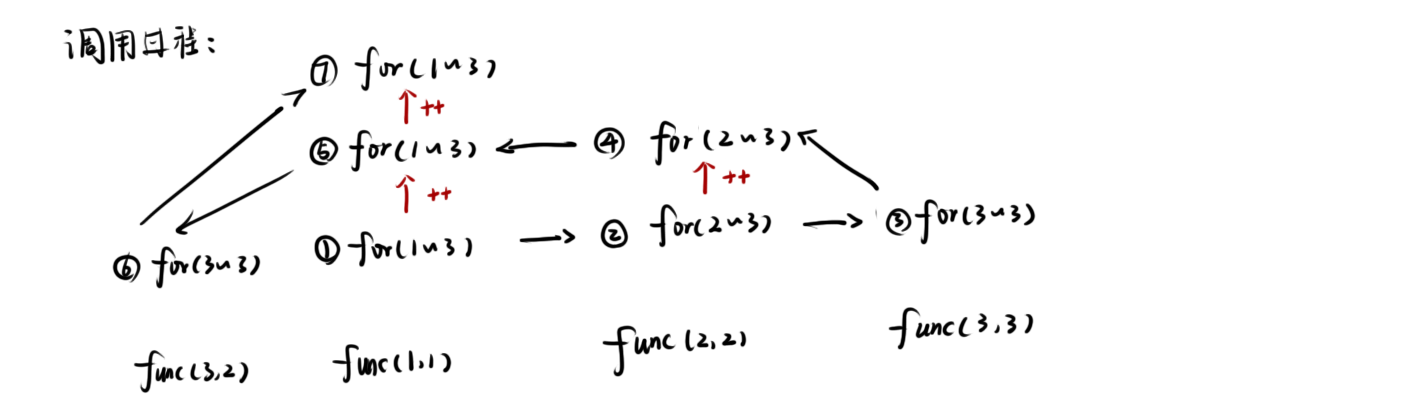 调用日程:
⑦ for(1~3)
++
⑤ for(1~3) ④ for(2~3)
++ ++
⑥ for(3~3) ① for(1~3) ② for(2~3) ③ for(3~3)
func(3,2) func(1,1) func(2,2) func(3,3)